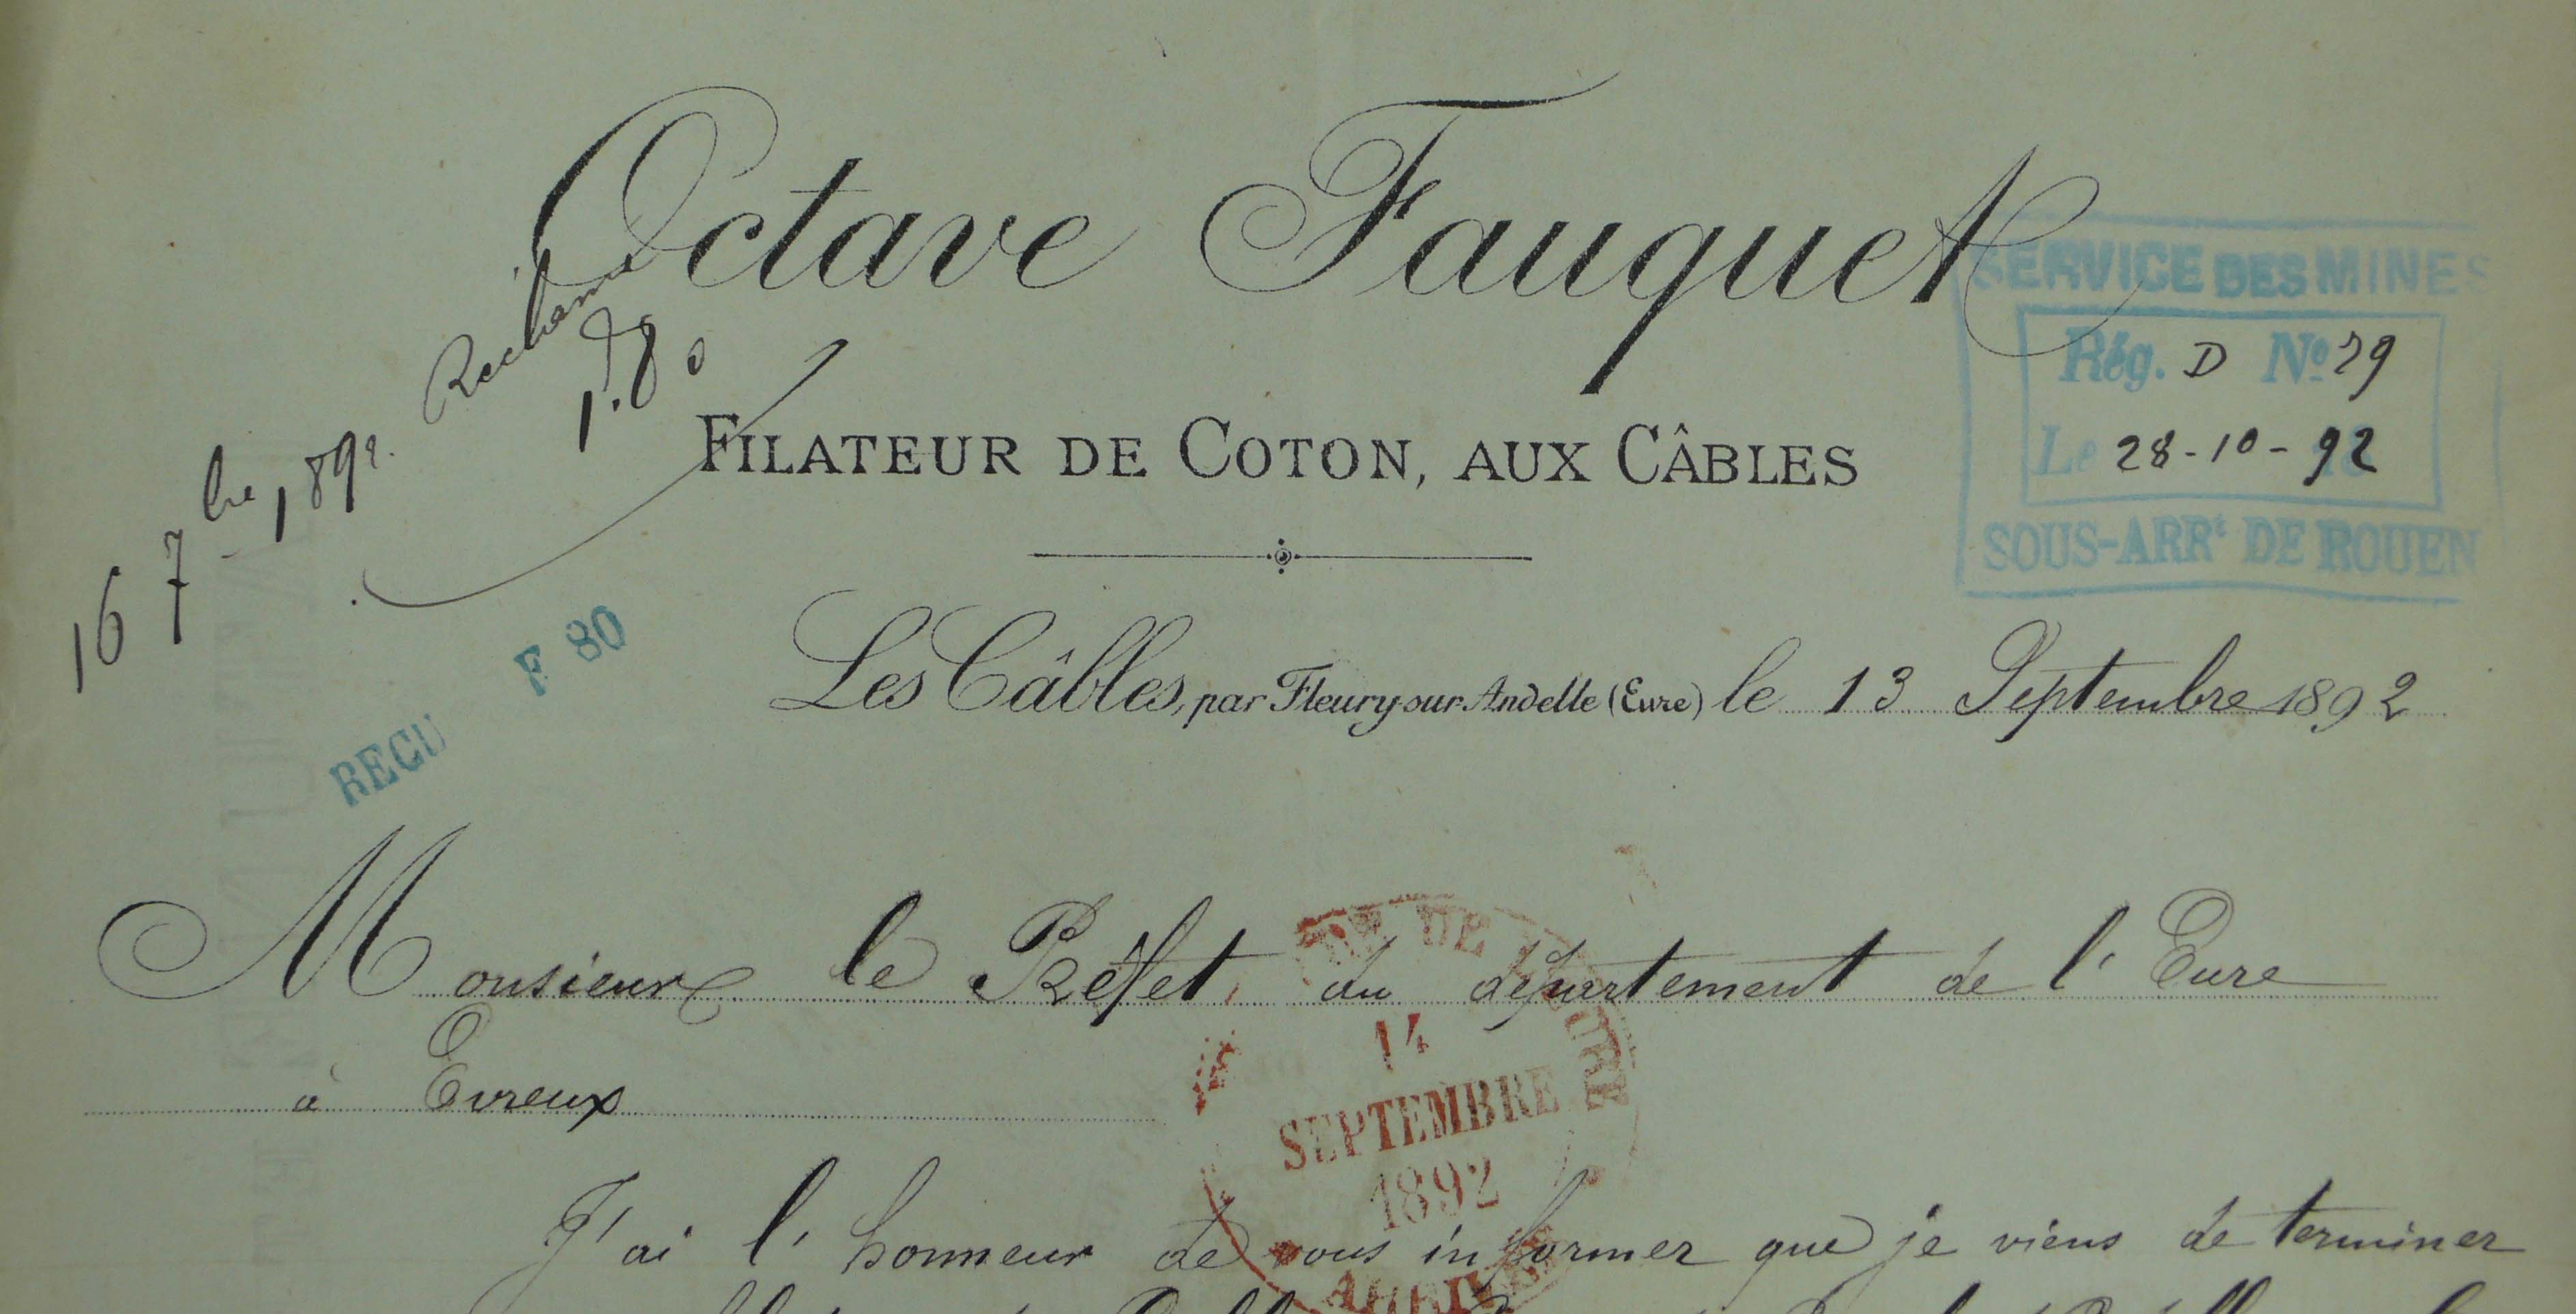 Octave Fauquet
SERVICE DES MINES
Rég. D No 79
Le 28-10-92
SOUS-ARRt DE ROUEN
1.80
FILATEUR DE COTON, AUX CÂBLES
16 7bre 1892
F 80
REÇU
Les Câbles, par Fleury-sur-Andelle (Eure) le 13 Septembre 1892
Monsieur le Préfet du département de l'Eure
à Evreux
DE L'EURE
14
SEPTEMBRE
1892
J'ai l'honneur de vous informer que je viens de terminer